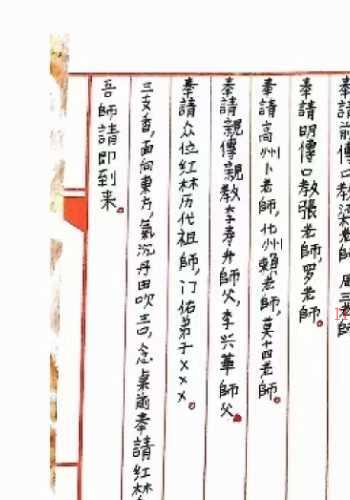 奉請前傳口教
奉請明傳口教張老師，罗老師。
奉請高州卜老師，化州賴老師，莫十四老師。
奉請親傳親教李孝升師父，李兴華師父。
奉請众位红林历代祖師，门佑弟子XXX。
三支香，面向東方，氣沉丹田吹三口，念桌前奉請红林
吾師請即到来。